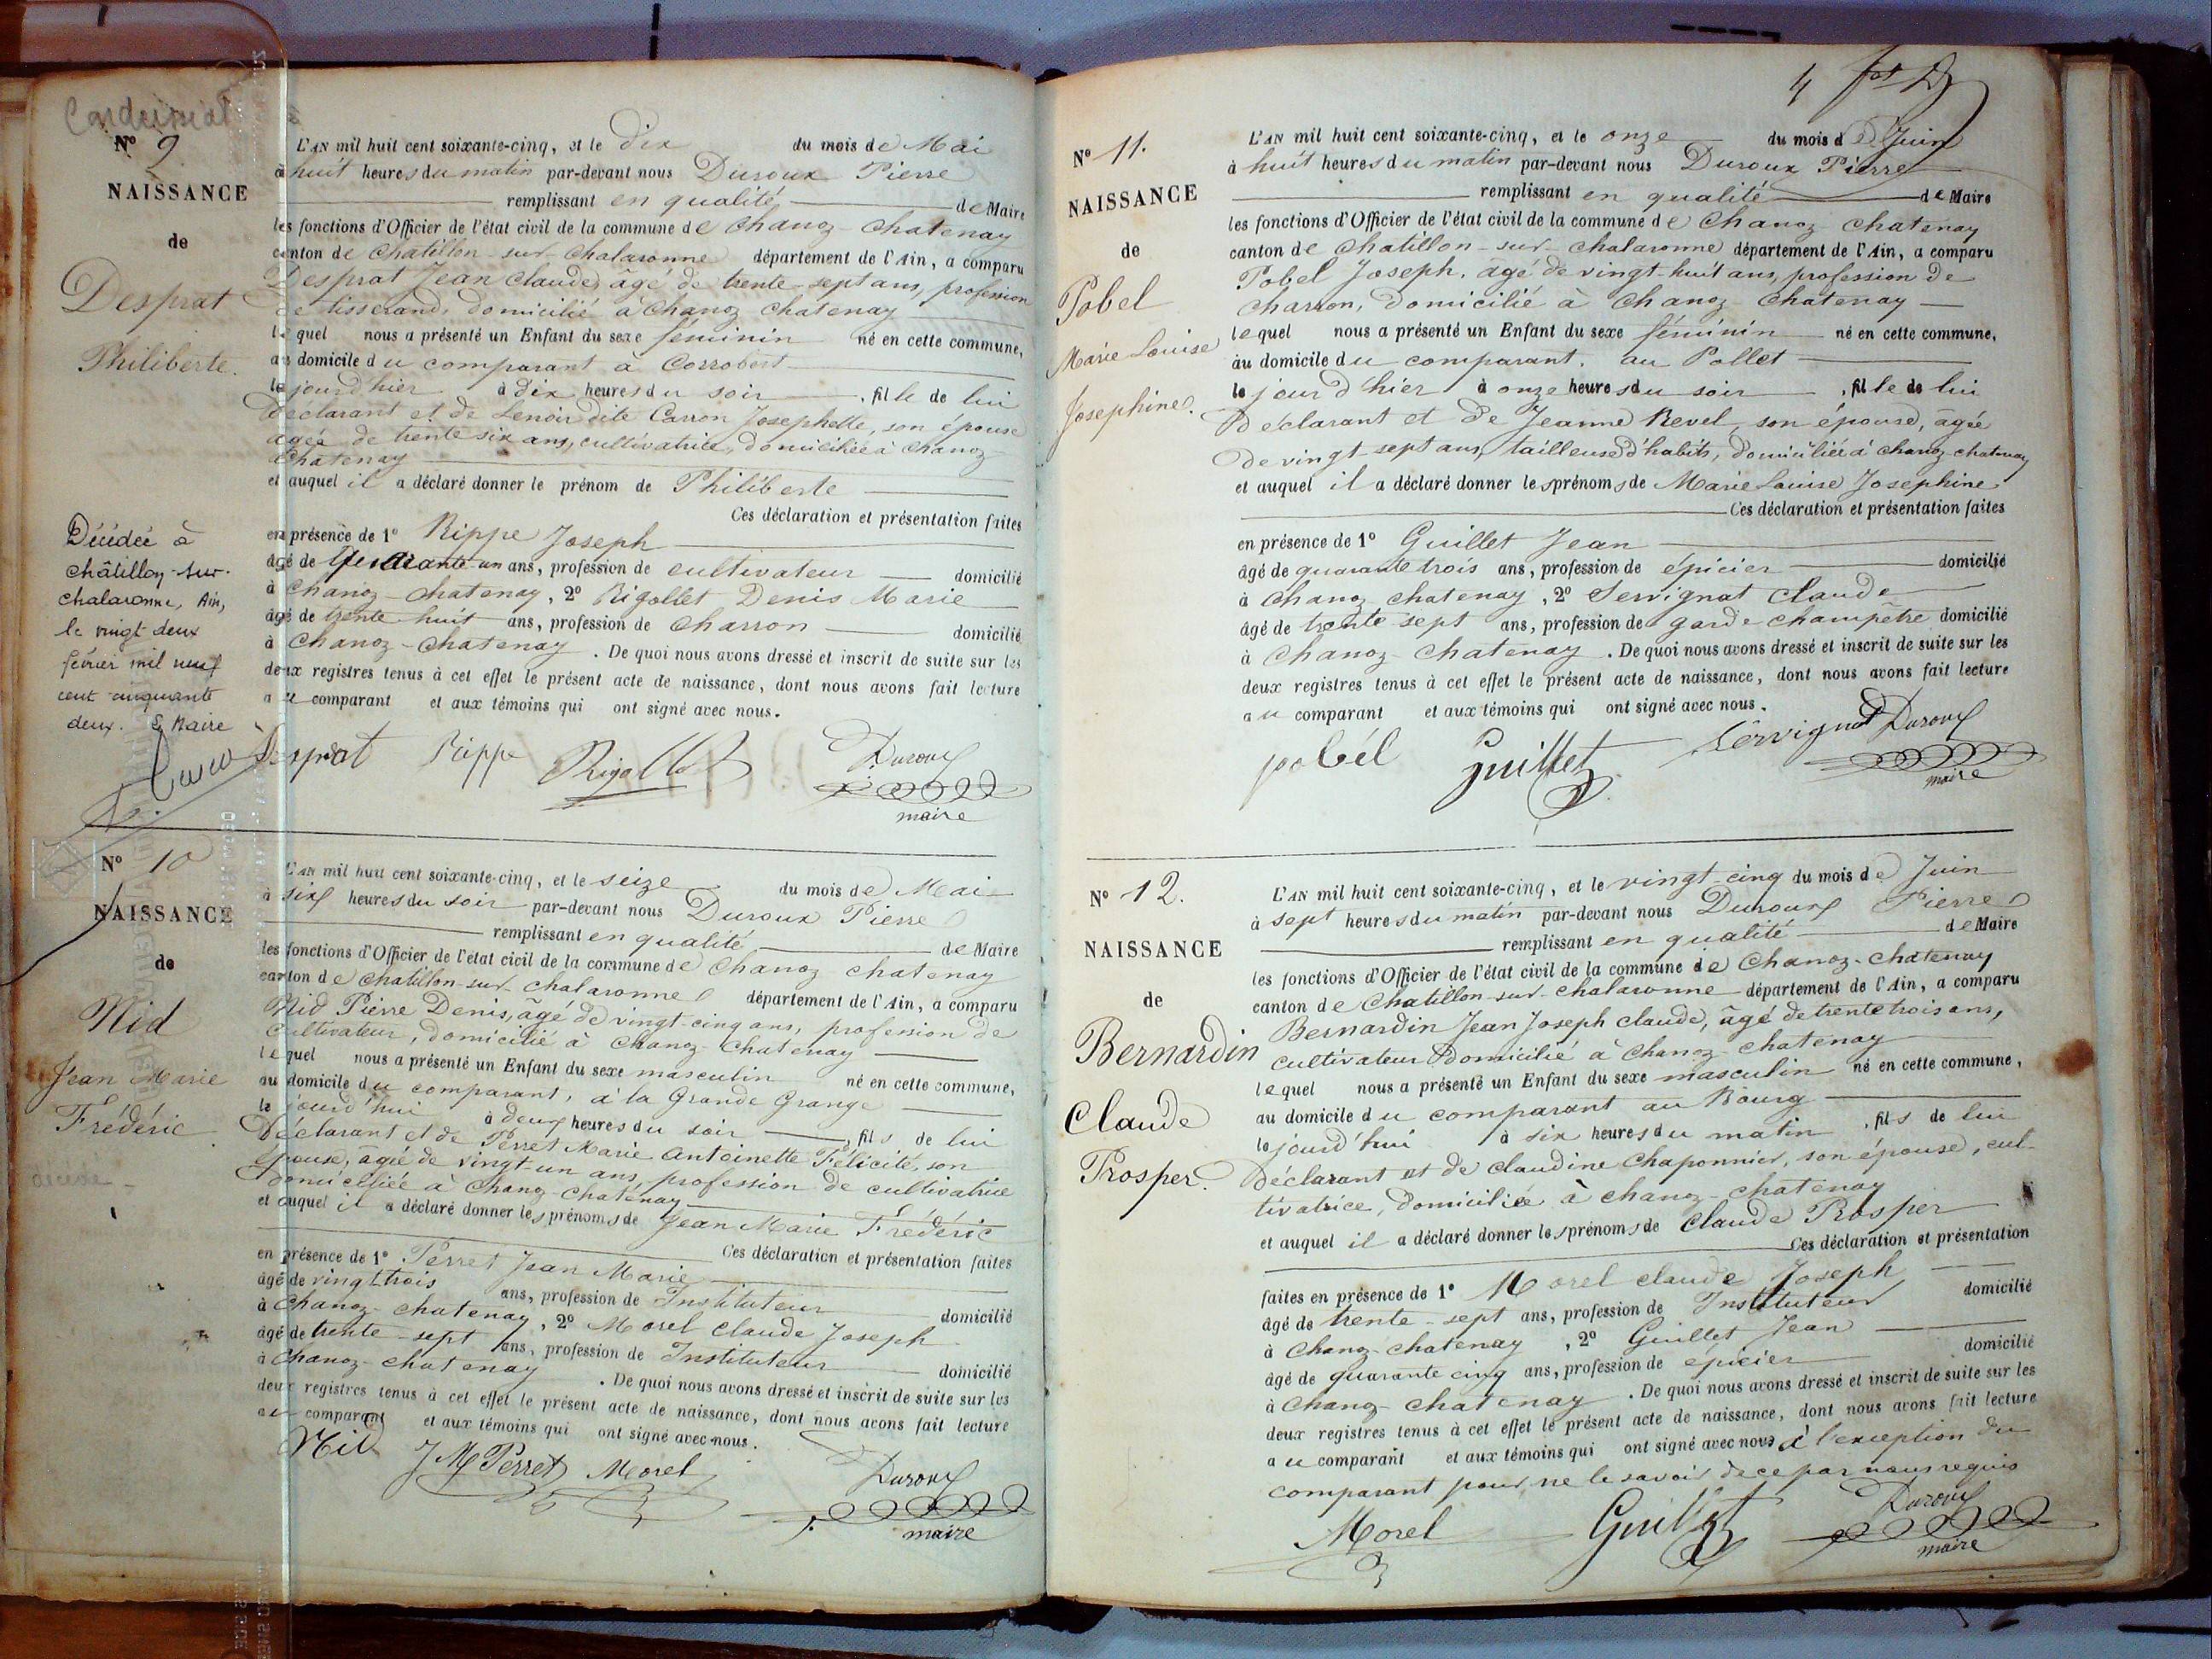 Nº 9
NAISSANCE
de
Desprat
Philiberte.
L'AN mil huit cent soixante-cinq, et le dix du mois de Mai
à huit heures du matin par-devant nous Duroux Pierre
remplissant en qualité de Maire
les fonctions d'Officier de l'état civil de la commune de Chanoz-Chatenay
canton de Chatillon-sur-Chalaronne département de l'Ain, a comparu
Desprat Jean Claude, âgé de trente-sept ans, profession
de tisserand, domicilié à Chanoz Chatenay
lequel nous a présenté un Enfant du sexe féminin né en cette commune,
au domicile du comparant à Corrobert
le jourd'hier à dix heures du soir , fille de lui
Déclarant et de Lenoir dite Carron Josephette, son épouse
agée de trente six ans, cultivatrice, domiciliée à Chanoz
Chatenay
et auquel il a déclaré donner le prénom de Philiberte
Ces déclaration et présentation faites
en présence de 1º Rippe Joseph
âgé de quarante-un ans, profession de cultivateur domicilié
à Chanoz-Chatenay, 2º Rigollet Denis Marie
âgé de trente-huit ans, profession de Charron domicilié
à Chanoz-Chatenay. De quoi nous avons dressé et inscrit de suite sur les
deux registres tenus à cet effet le présent acte de naissance, dont nous avons fait lecture
au comparant et aux témoins qui ont signé avec nous.
Desprat Rippe Rigollet Duroux
maire
Décédée à
Châtillon-sur-
Chalaronne, Ain,
le vingt deux
février mil neuf
cent cinquante
deux. Le Maire
Nº 10
NAISSANCE
de
Nid
Jean Marie
Frédéric
décédé
L'AN mil huit cent soixante-cinq, et le seize du mois de Mai
à six heures du soir par-devant nous Duroux Pierre
remplissant en qualité de Maire
les fonctions d'Officier de l'état civil de la commune de Chanoz Chatenay
canton de Chatillon-sur-Chalaronne département de l'Ain, a comparu
Nid Pierre Denis, âgé de vingt-cinq ans, profession de
Cultivateur, domicilié à Chanoz-Chatenay
lequel nous a présenté un Enfant du sexe masculin né en cette commune,
au domicile du comparant, à la Grande Grange
le jourd'hui à deux heures du soir , fils de lui
Déclarant et de Perret Marie Antoinette Félicité, son
épouse, agée de vingt un ans, profession de cultivatrice
domiciliée à Chanoz-Chatenay
et auquel il a déclaré donner les prénoms de Jean Marie Frédéric
Ces déclaration et présentation faites
en présence de 1º Perret Jean Marie
âgé de vingt trois ans, profession de Instituteur domicilié
à Chanoz-Chatenay, 2º Morel Claude Joseph
âgé de trente-sept ans, profession de Instituteur domicilié
à Chanoz-Chatenay. De quoi nous avons dressé et inscrit de suite sur les
deux registres tenus à cet effet le présent acte de naissance, dont nous avons fait lecture
au comparant et aux témoins qui ont signé avec nous.
Nid J M Perret Morel Duroux
maire
4
Nº 11.
NAISSANCE
de
Pobel
Marie Louise
Josephine.
L'AN mil huit cent soixante-cinq, et le onze du mois de Juin
à huit heures du matin par-devant nous Duroux Pierre
remplissant en qualité de Maire
les fonctions d'Officier de l'état civil de la commune de Chanoz Chatenay
canton de Chatillon-sur-Chalaronne département de l'Ain, a comparu
Pobel Joseph, âgé de vingt-huit ans, profession de
charron, domicilié à Chanoz Chatenay
lequel nous a présenté un Enfant du sexe féminin né en cette commune,
au domicile du comparant, au Pollet
le jourd'hier à onze heures du soir , fille de lui
Déclarant et de Jeanne Revel, son épouse, âgée
de vingt-sept ans, tailleuse d'habits, domiciliée à Chanoz-Chatenay
et auquel il a déclaré donner les prénoms de Marie Louise Josephine
Ces déclaration et présentation faites
en présence de 1º Guillet Jean
âgé de quarante trois ans, profession de épicier domicilié
à Chanoz Chatenay, 2º Servignat Claude
âgé de trente sept ans, profession de garde-champêtre domicilié
à Chanoz-Chatenay. De quoi nous avons dressé et inscrit de suite sur les
deux registres tenus à cet effet le présent acte de naissance, dont nous avons fait lecture
au comparant et aux témoins qui ont signé avec nous.
pobél Guillet Servignat Duroux
maire
Nº 12.
NAISSANCE
de
Bernardin
Claude
Prosper.
L'AN mil huit cent soixante-cinq, et le vingt-cinq du mois de Juin
à sept heures du matin par-devant nous Duroux Pierre
remplissant en qualité de Maire
les fonctions d'Officier de l'état civil de la commune de Chanoz-Chatenay
canton de Chatillon-sur-Chalaronne département de l'Ain, a comparu
Bernardin Jean Joseph Claude, âgé de trente trois ans,
cultivateur domicilié à Chanoz-Chatenay
lequel nous a présenté un Enfant du sexe masculin né en cette commune,
au domicile du comparant au Bourg
le jourd'hui à six heures du matin , fils de lui
Déclarant et de Claudine Chaponnier, son épouse, cul-
tivatrice, domiciliée à Chanoz-Chatenay
et auquel il a déclaré donner les prénoms de Claude Prosper
Ces déclaration et présentation
faites en présence de 1º Morel Claude Joseph
âgé de trente-sept ans, profession de Instituteur domicilié
à Chanoz-Chatenay, 2º Guillet Jean
âgé de quarante cinq ans, profession de épicier domicilié
à Chanoz-Chatenay. De quoi nous avons dressé et inscrit de suite sur les
deux registres tenus à cet effet le présent acte de naissance, dont nous avons fait lecture
au comparant et aux témoins qui ont signé avec nous à l'exception du
comparant pour ne le savoir de ce par nous requis
Morel Guillet Duroux
maire